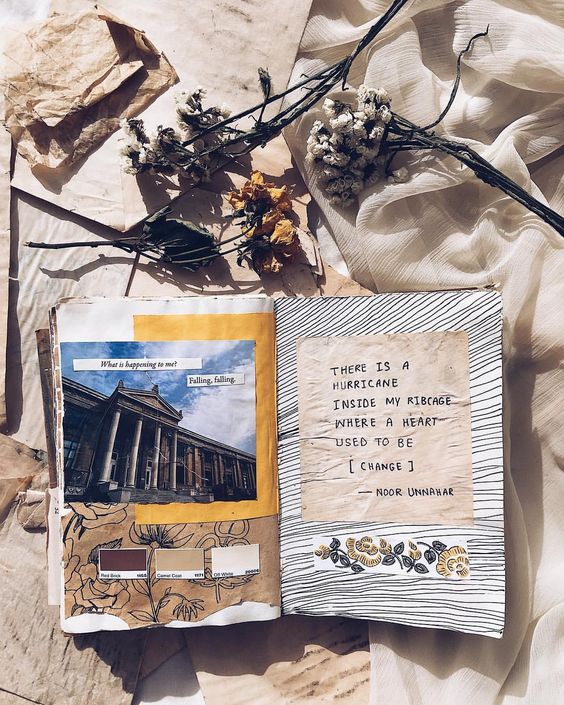 What is happening to me?
Falling, falling.
Red Brick 1168
Camel Coat 1171
Off White
THERE IS A
HURRICANE
INSIDE MY RIBCAGE
WHERE A HEART
USED TO BE
[CHANGE]
— NOOR UNNAHAR